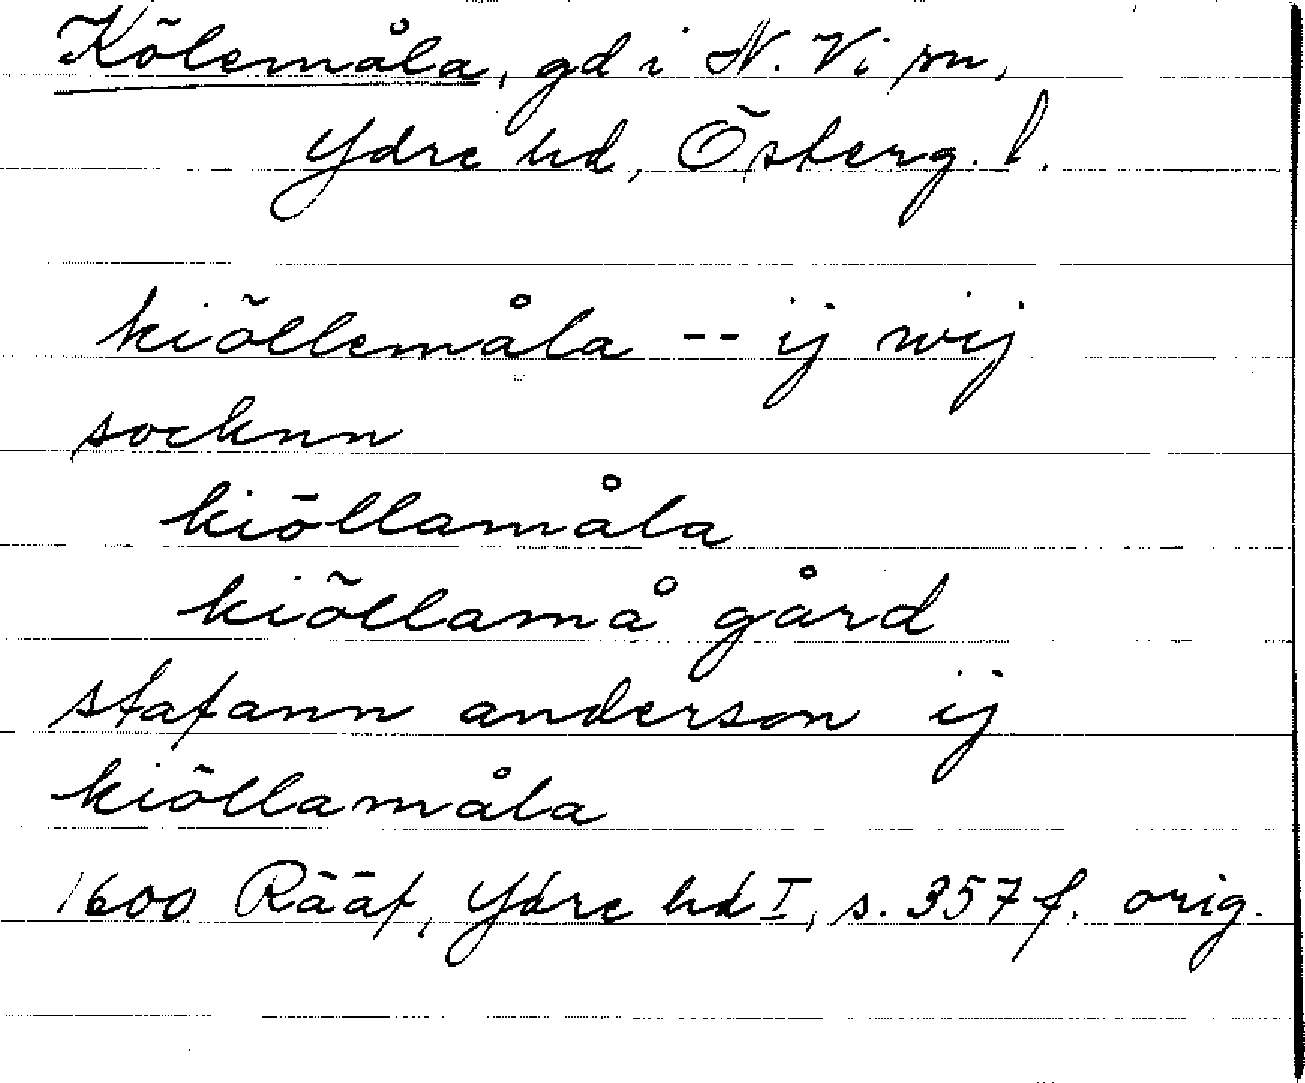 Kölemåla, gd i N. Vi sn,
Ydre hd, Österg. l.
kiöllemåla -- ij wij
socknn
kiöllamåla
kiöllamå gård
stafann anderson ij
kiöllamåla
1600 Rääf, Ydre hd I, s. 357 f. orig.